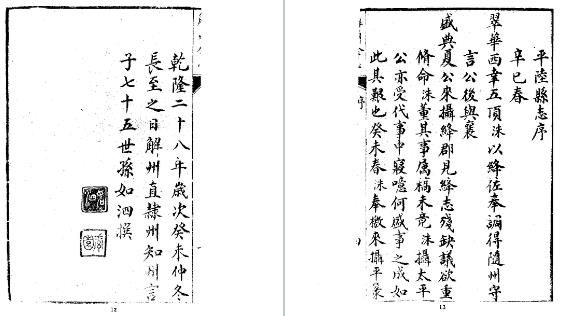 平陸縣志序
辛巳春
翠華西幸五頂洙以絳佐奉調得隨州守
言公後與襄
盛典夏公來攝絳郡見絳志殘缺議欲重
脩命洙董其事属稿未竟洙攝太平
公亦受代事中寢噫何盛事之成如
此其艱也癸未春洙奉檄來攝平篆
序
13
乾隆二十八年歲次癸未仲冬
長至之日解州直隸州知州言
子七十五世孫如泗撰